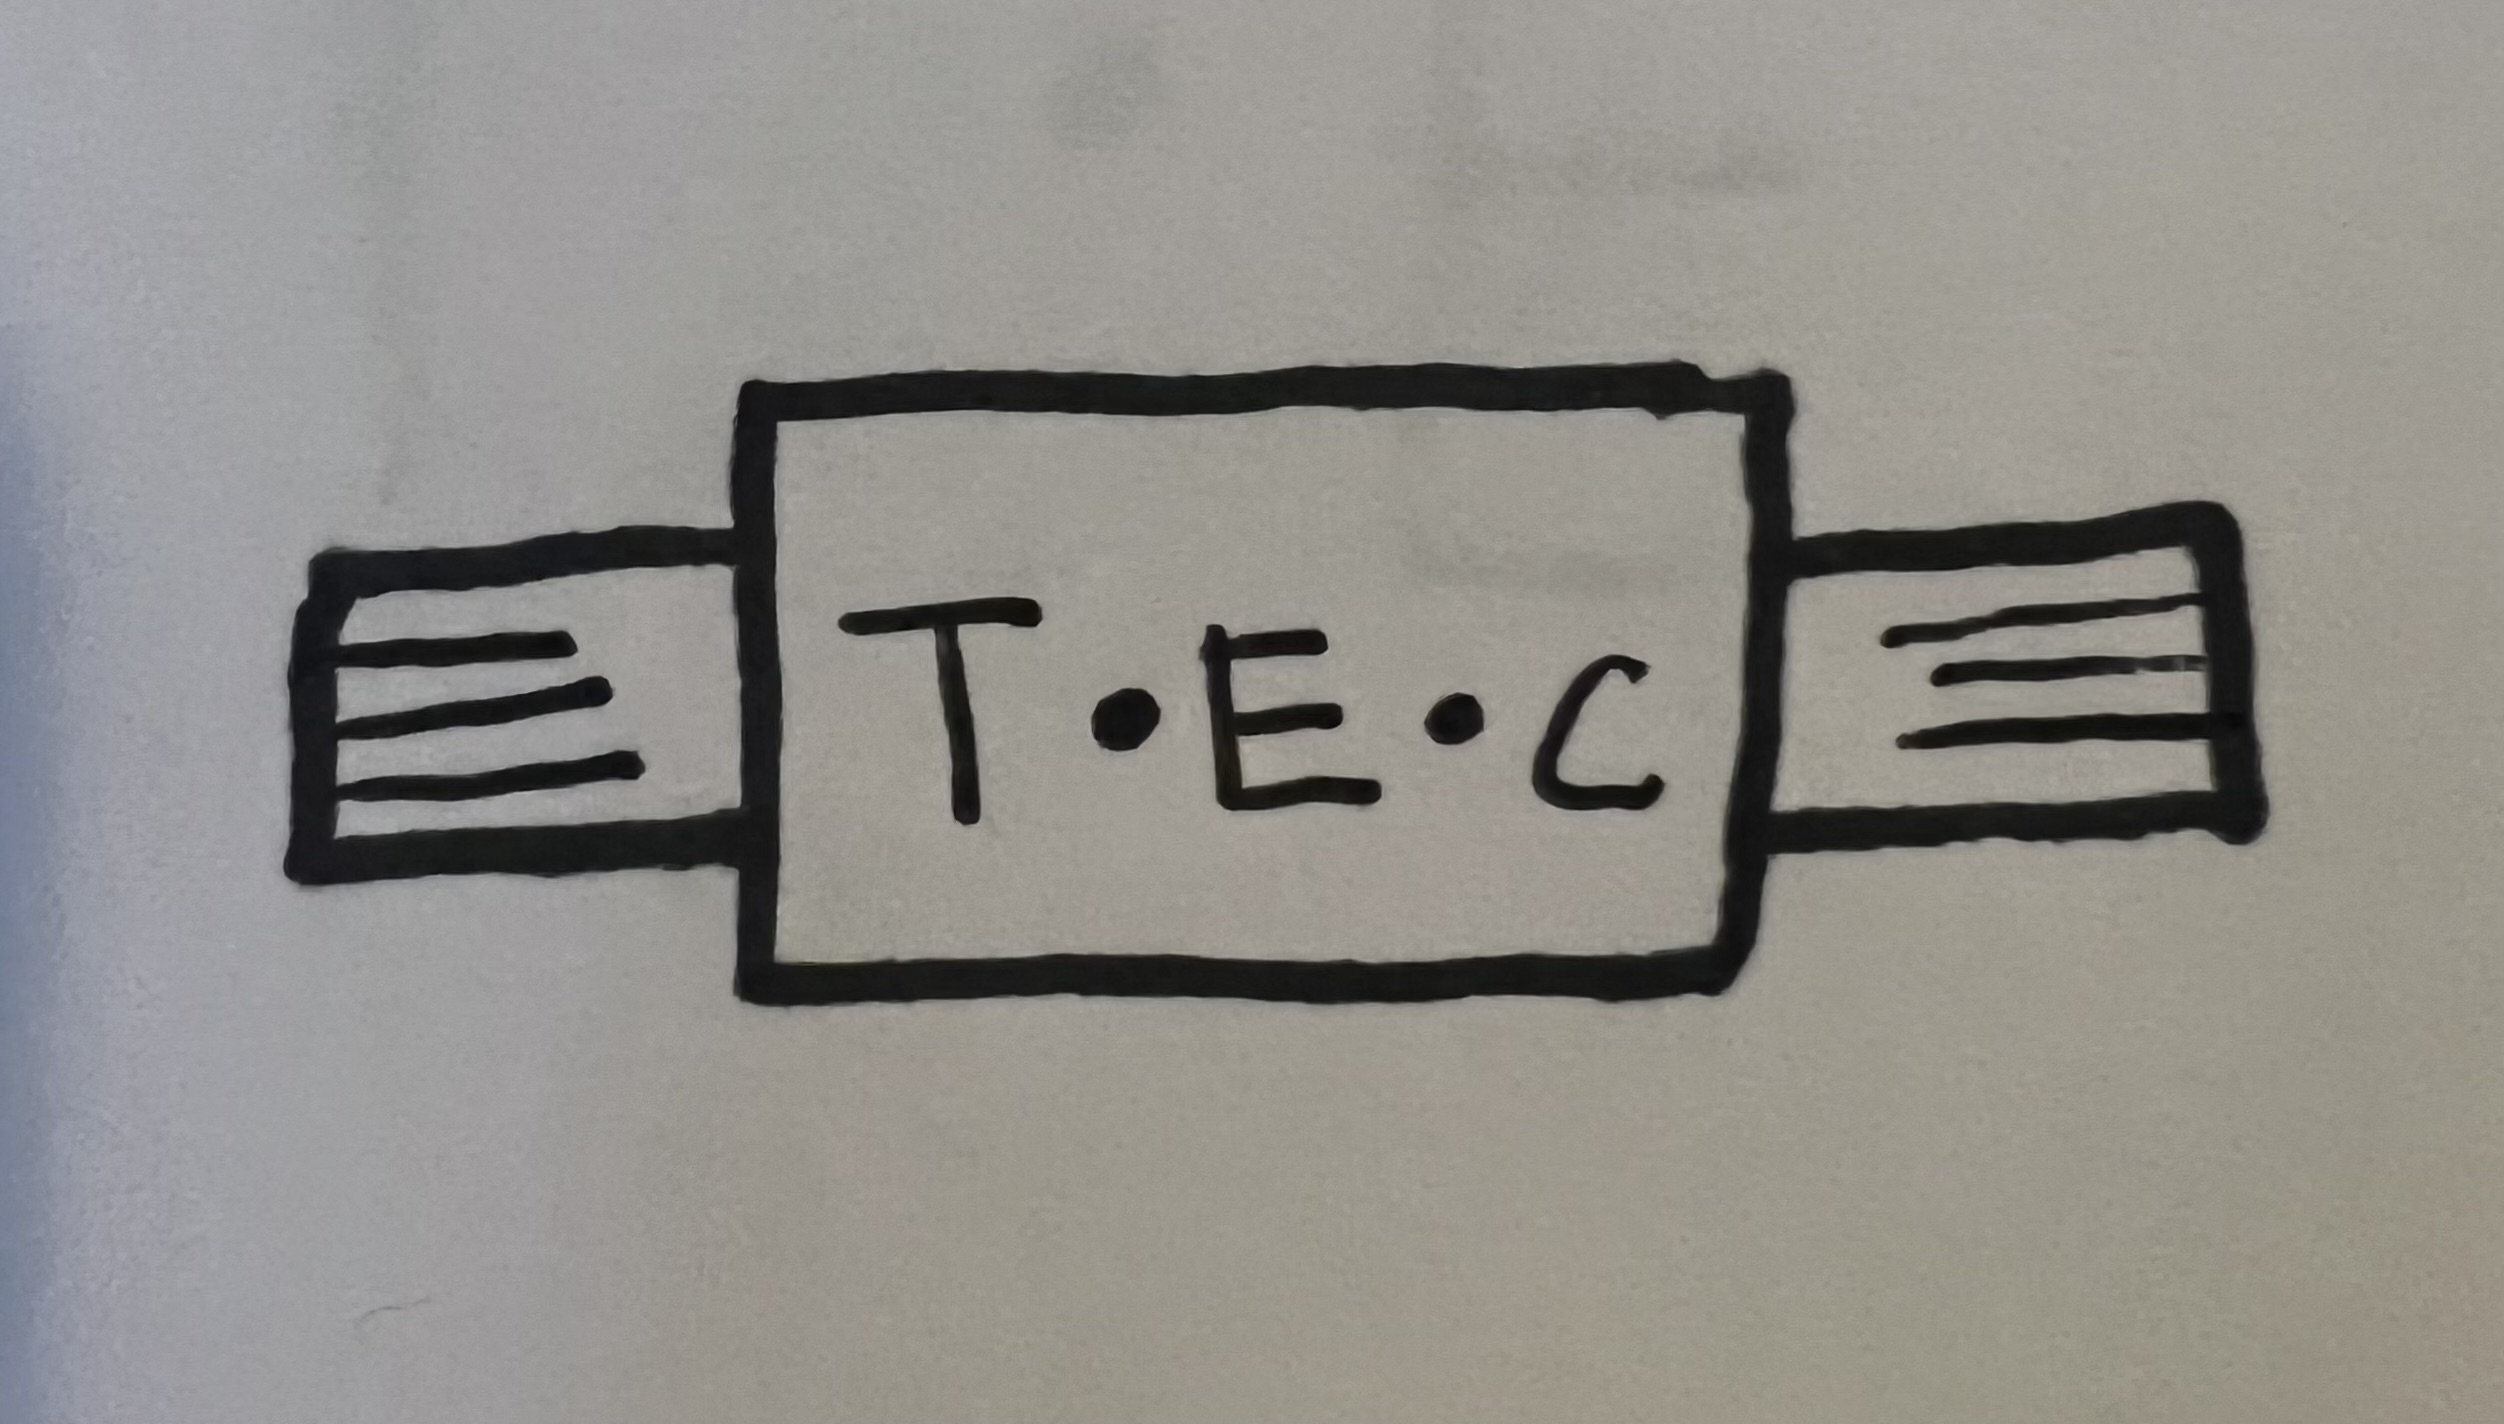 T•E•C